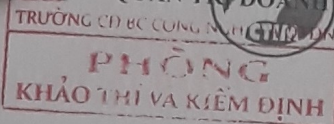 TRƯỜNG CĐ BC CÔNG
PHÒNG
KHẢO THÍ VÀ KIỂM ĐỊNH